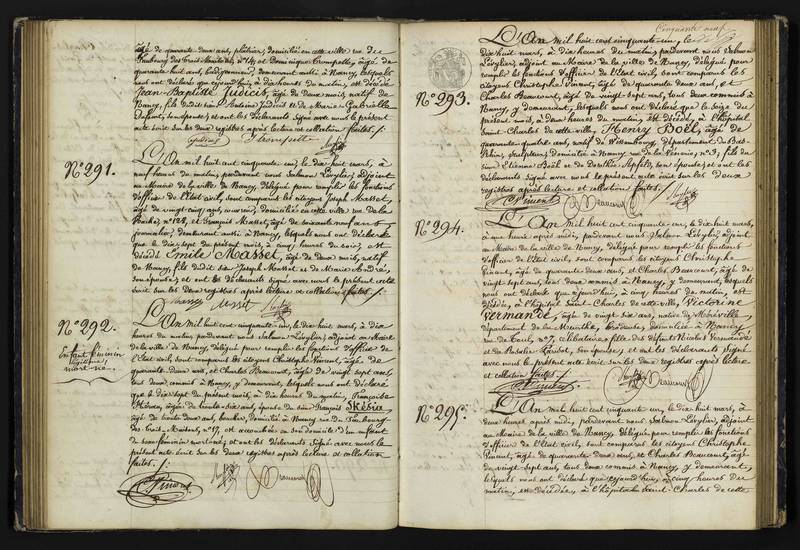 âgé de quarante deux ans, plâtrier, domicilié en cette ville rue du
Faubourg des Trois Maisons, n° et Dominique Trompette, âgé de
quarante huit ans, demeurant aussi à Nancy, lesquels
nous ont déclaré que cejourd'hui, à dix heures du matin, est décédé
Jean-Baptiste, âgé de deux mois, natif de
Nancy, fils dudit sieur Antoine et de Marie Gabrielle
son épouse; et ont les déclarants signé avec nous le présent
acte écrit sur les deux registres après lecture et collation faites./.
N° 291.
L'An mil huit cent cinquante-un, le dix huit mars, à
neuf heures du matin, pardevant nous Salmon Lévylier, adjoint
au Maire de la ville de Nancy, délégué pour remplir les fonctions
d'officier de l'état civil, sont comparus les citoyens Joseph Masset,
âgé de vingt-cinq ans, domicilié en cette ville rue de la
n° 128, et François Masset, âgé de soixante neuf ans,
journalier, demeurant aussi à Nancy, lesquels nous ont déclaré
que le dix sept du présent mois, à cinq heures du soir, est
décédé Emile Masset, âgé de deux mois, natif
de Nancy, fils dudit sieur Joseph Masset et de Marie André,
son épouse; et ont les déclarants signé avec nous le présent acte
écrit sur les deux registres après lecture et collation faites./.
N° 292.
Enfant féminin
légitime
mort-né.
L'An mil huit cent cinquante-un, le dix huit mars, à dix
heures du matin, pardevant nous Salmon Lévylier, adjoint au Maire
de la ville de Nancy, délégué pour remplir les fonctions d'officier de
l'état civil, sont comparus les citoyens Christophe Pimont, âgé de
quarante deux ans, et Charles Beaucourt, âgé de vingt sept ans,
tous deux commis à Nancy, y demeurant, lesquels nous ont déclaré
que le dix sept du présent mois, à dix heures du matin, Françoise
âgée de trente-six ans, épouse du sieur François Skésia,
âgé de trente deux ans, domicilié à Nancy rue du Faubourg-
des-Trois-Maisons, n° 17, est accouchée en son domicile d'un enfant
du sexe féminin mort-né; et ont les déclarants signé avec nous le
présent acte écrit sur les deux registres après lecture et collation
faites./.
Cinquante neuf
N° 293.
L'An mil huit cent cinquante-un, le
dix huit mars, à dix heures du matin, pardevant nous Salmon
Lévylier, adjoint au Maire de la ville de Nancy, délégué pour
remplir les fonctions d'officier de l'état civil, sont comparus les
citoyens Christophe Pimont, âgé de quarante deux ans, et
Charles Beaucourt, âgé de vingt-sept ans, tous deux commis à
Nancy, y demeurant, lesquels nous ont déclaré que le seize du
présent mois, à deux heures du matin, est décédé, à l'hôpital
Saint-Charles de cette ville, Henry Boël, âgé de
quarante quatre ans, natif de Wissembourg, département du Bas-
Rhin, sculpteur, domicilié à Nancy rue de la n° 3, fils du
sieur Etienne Boël et de Dorothée son épouse; et ont les
déclarants signé avec nous le présent acte écrit sur les deux
registres après lecture et collation faites./.
N° 294.
L'An mil huit cent cinquante-un, le dix huit mars,
à une heure après midi, pardevant nous Salmon Lévylier, adjoint
au Maire de la ville de Nancy, délégué pour remplir les fonctions
d'officier de l'état civil, sont comparus les citoyens Christophe
Pimont, âgé de quarante deux ans, et Charles Beaucourt, âgé de
vingt sept ans, tous deux commis à Nancy, y demeurant, lesquels
nous ont déclaré que cejourd'hui, à cinq heures du matin, est
décédée, à l'hôpital Saint-Charles de cette ville, Victorine
Vermande, âgée de vingt-six ans, native de Méréville,
département de la Meurthe, brodeuse, domiciliée à Nancy
rue n° 7, célibataire, fille des défunts Nicolas
et de son épouse; et ont les déclarants signé
avec nous le présent acte écrit sur les deux registres après lecture
et collation faites./.
N° 295.
L'An mil huit cent cinquante-un, le dix huit mars, à
deux heures après midi, pardevant nous Salmon Lévylier, adjoint
au Maire de la ville de Nancy, délégué pour remplir les fonctions
d'officier de l'état civil, sont comparus les citoyens Christophe
Pimont, âgé de quarante deux ans, et Charles Beaucourt, âgé
de vingt-sept ans, tous deux commis à Nancy, y demeurant,
lesquels nous ont déclaré que cejourd'hui, à cinq heures du
matin, est décédée, à l'hôpital Saint-Charles de cette